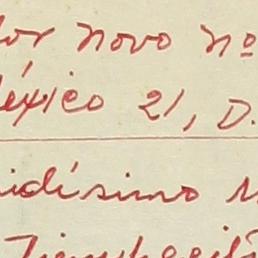 or novo nº
éxico 21, D.
idísimo